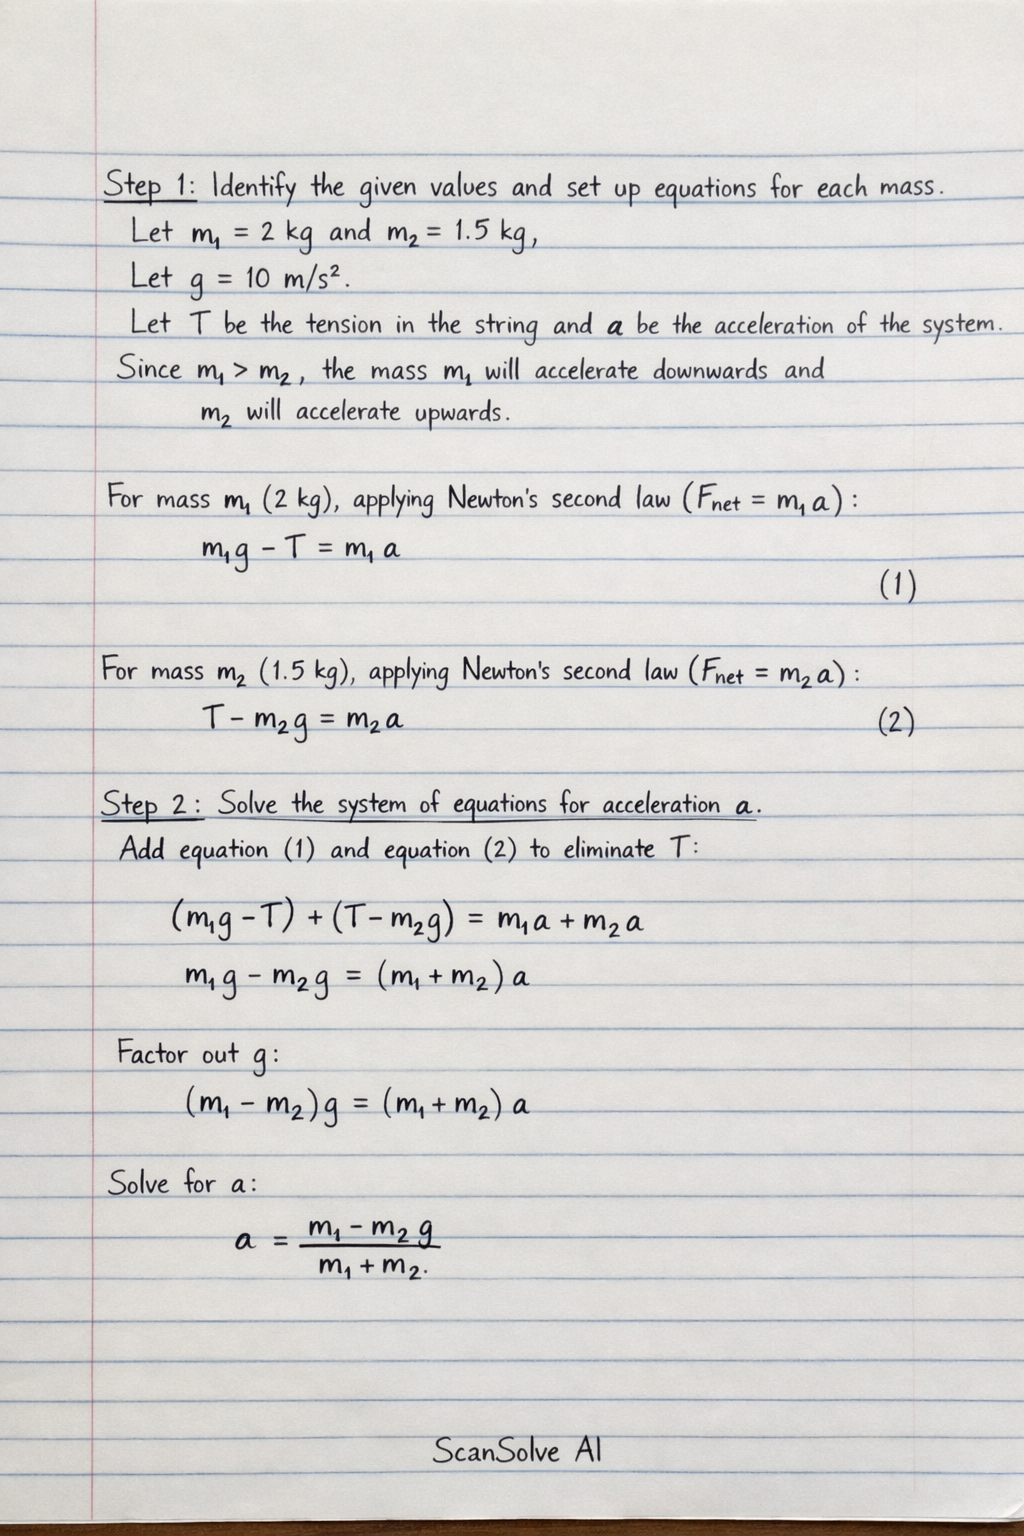 Step 1: Identify the given values and set up equations for each mass.
Let m₁ = 2 kg and m₂ = 1.5 kg,
Let g = 10 m/s².
Let T be the tension in the string and a be the acceleration of the system.
Since m₁ > m₂, the mass m₁ will accelerate downwards and
m₂ will accelerate upwards.
For mass m₁ (2 kg), applying Newton's second law (Fnet = m₁ a):
m₁g − T = m₁ a
(1)
For mass m₂ (1.5 kg), applying Newton's second law (Fnet = m₂ a):
T − m₂g = m₂ a (2)
Step 2: Solve the system of equations for acceleration a.
Add equation (1) and equation (2) to eliminate T:
(m₁g − T) + (T − m₂g) = m₁a + m₂a
m₁g − m₂g = (m₁ + m₂) a
Factor out g:
(m₁ − m₂)g = (m₁ + m₂) a
Solve for a:
a = m₁ − m₂ g
m₁ + m₂.
ScanSolve AI